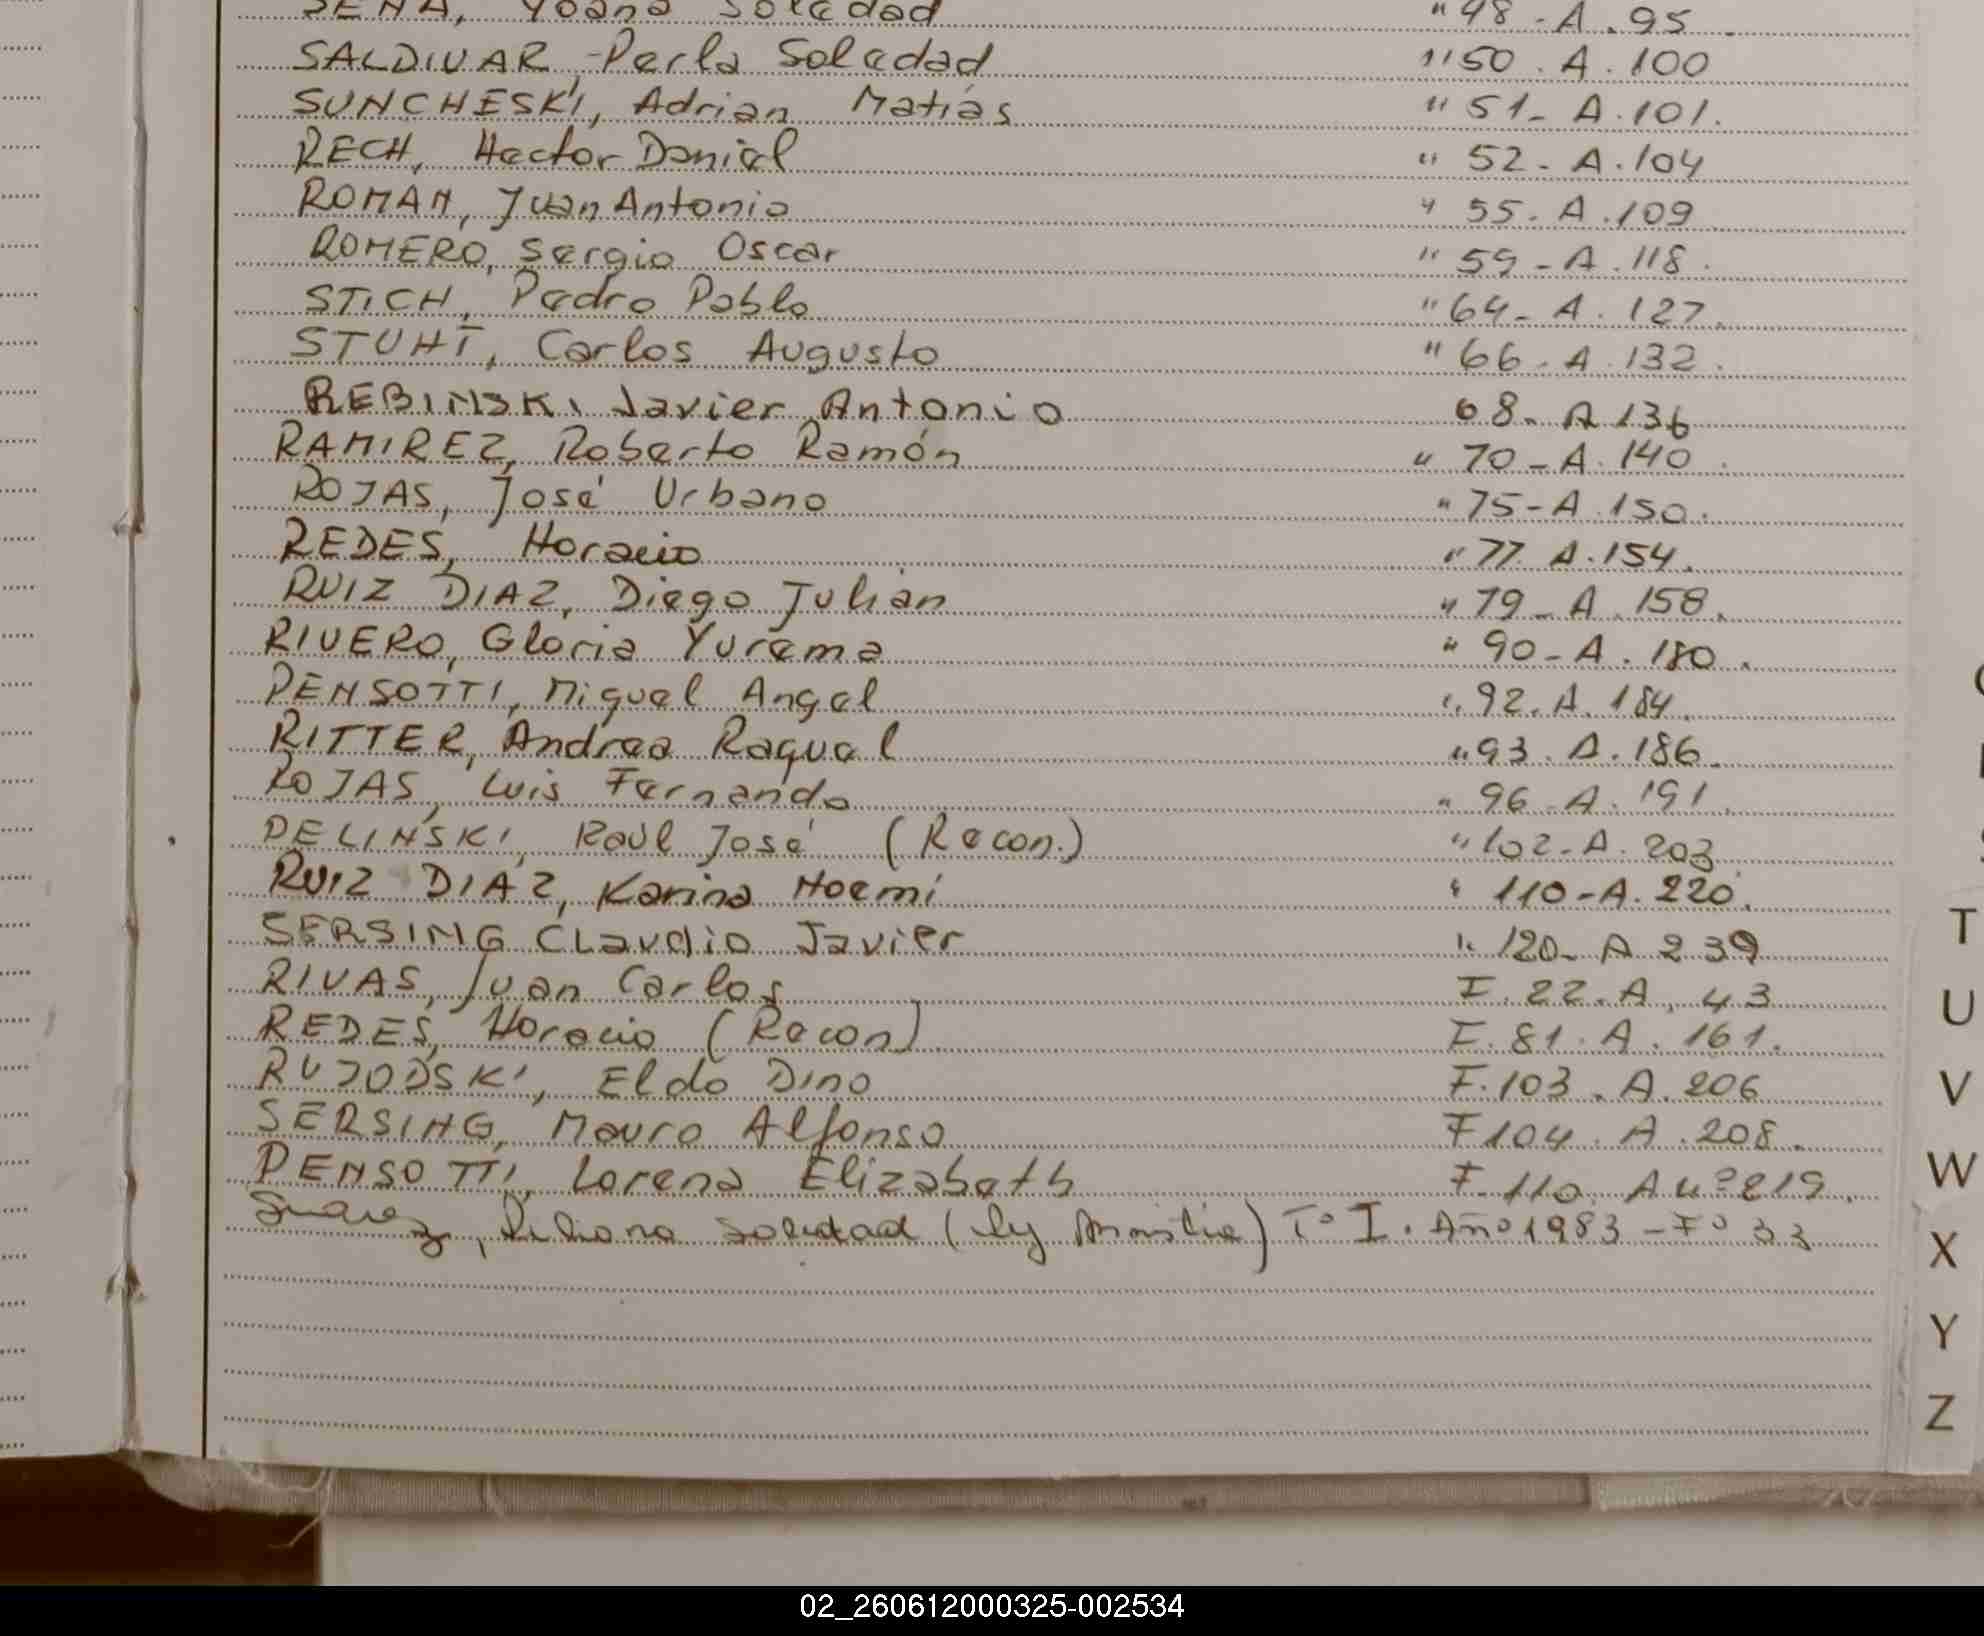 SENA, Yoana Soledad " 48 - A. 95
SALDIVAR, Perla Soledad " 50. A. 100
SUNCHESKI, Adrian Matias " 51- A. 101.
RECH, Hector Daniel " 52- A. 104
ROMAN, Juan Antonio " 55. A. 109
ROMERO, Sergio Oscar " 59 - A. 118.
STICH, Pedro Pablo " 64- A. 127.
STUHT, Carlos Augusto " 66- A. 132.
REBINSKI Javier Antonio 68- A 136
RAMIREZ, Roberto Ramón " 70 - A. 140.
ROJAS, José Urbano " 75 - A. 150.
REDES, Horacio " 77. A. 154.
RUIZ DIAZ, Diego Julian " 79 - A. 158.
RIVERO, Gloria Yurema " 90 - A. 180.
PENSOTTI, Miguel Angel " 92. A. 184.
RITTER, Andrea Raquel " 93. A. 186.
ROJAS, Luis Fernando " 96 - A. 191.
PELINSKI, Raúl José (Recon.) " 102 - A. 203
RUIZ DIAZ, Karina Noemi " 110 - A. 220.
SERSING Claudio Javier " 120- A 239
RIVAS, Juan Carlos F. 22. A. 43
REDES, Horacio (Recon) F. 81. A. 161.
RUJODSKI, Eldo Dino F. 103. A. 206
SERSING, Mauro Alfonso F 104. A. 208.
PENSOTTI, Lorena Elizabeth F. 110. A nº 219.
Suarez, Liliana Soledad (ley Amnistia) Tº I. Año 1983 - Fº 33
T
U
V
W
X
Y
Z
02_260612000325-002534